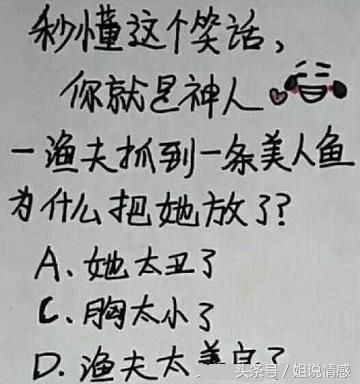 秒懂这个笑话，
你就是神人
一渔夫抓到一条美人鱼
为什么把她放了？
A、她太丑了
C、胸太小了
D、渔夫太善良了
头条号／姐说情感